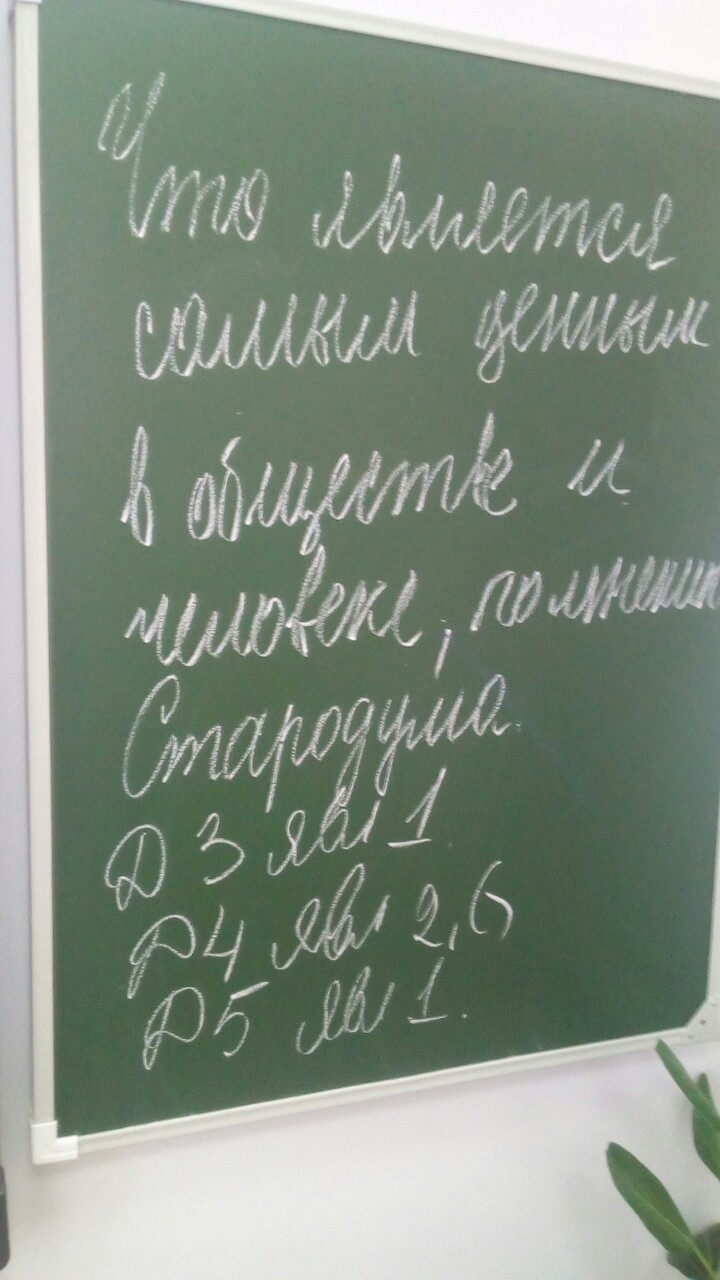 Что является
самым ценным
в обществе и
человеке, по мнению
Стародума.
Д 3 явл 1
Д 4 явл 2, 6
Д 5 явл 1.